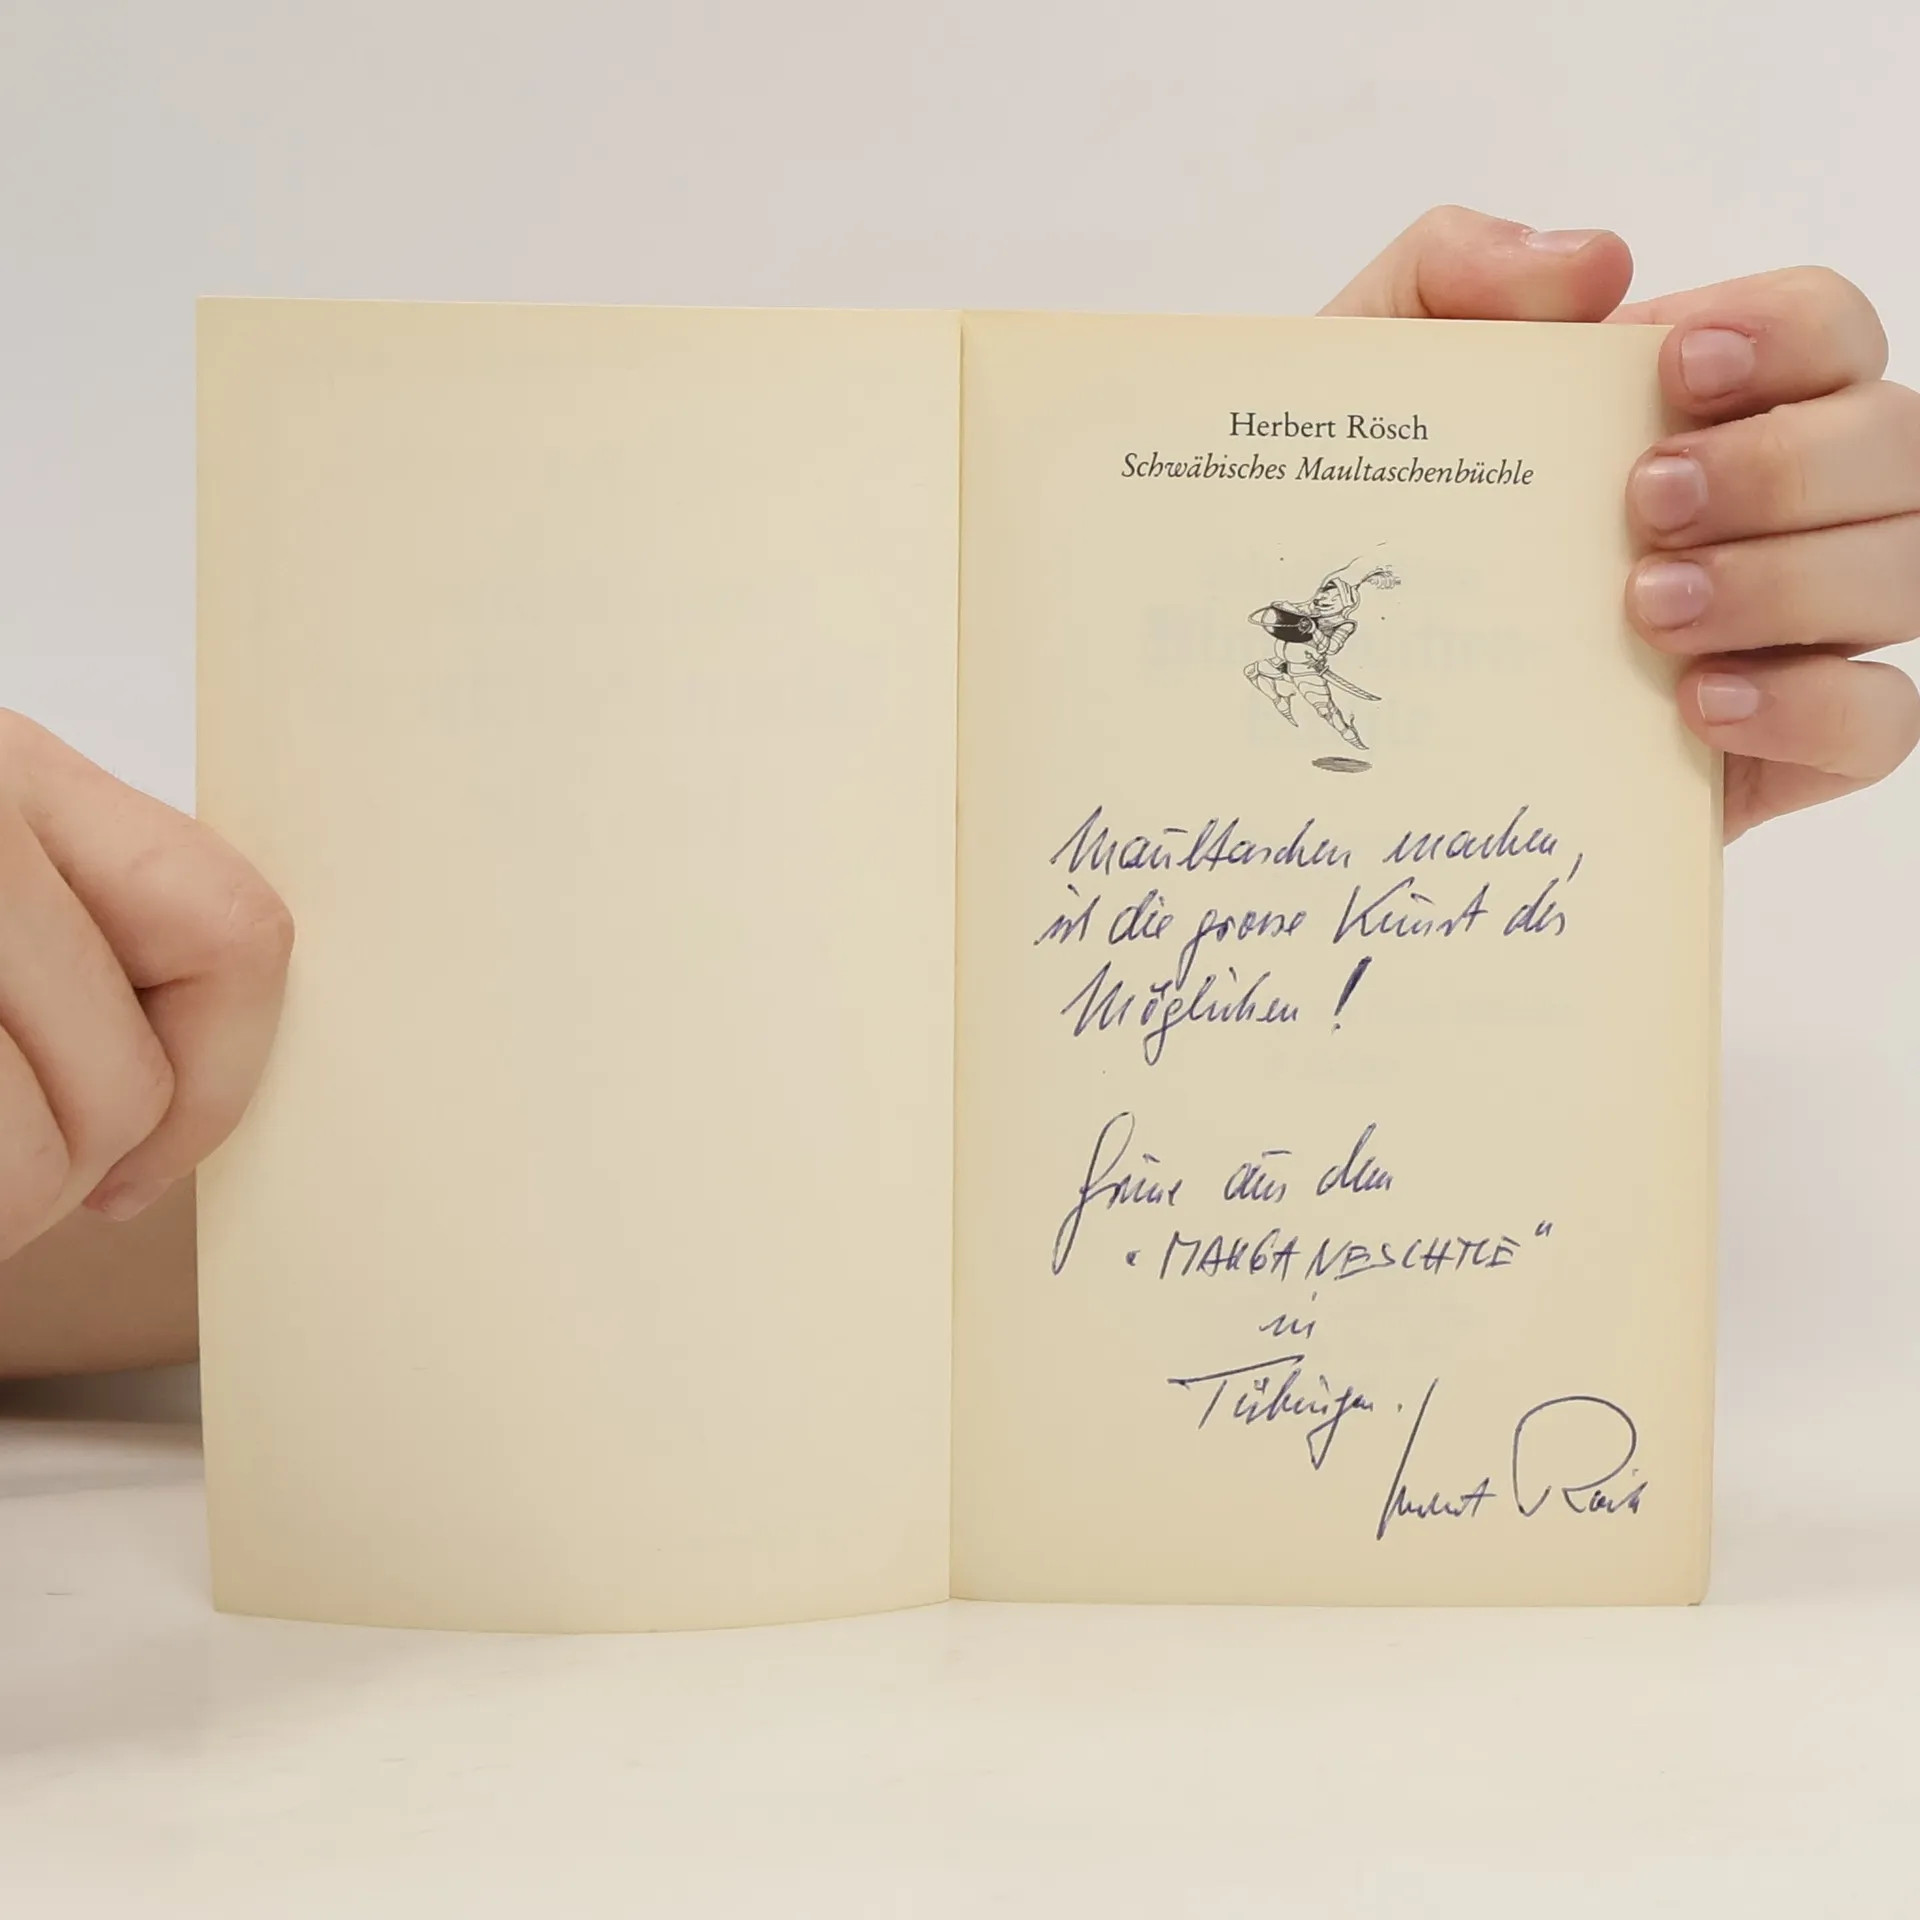 Herbert Rösch
Schwäbisches Maultaschenbüchle
Maultaschen machen,
ist die grosse Kunst des
Möglichen!
Grüsse aus dem
in
Tübingen.
Herbert Rösch